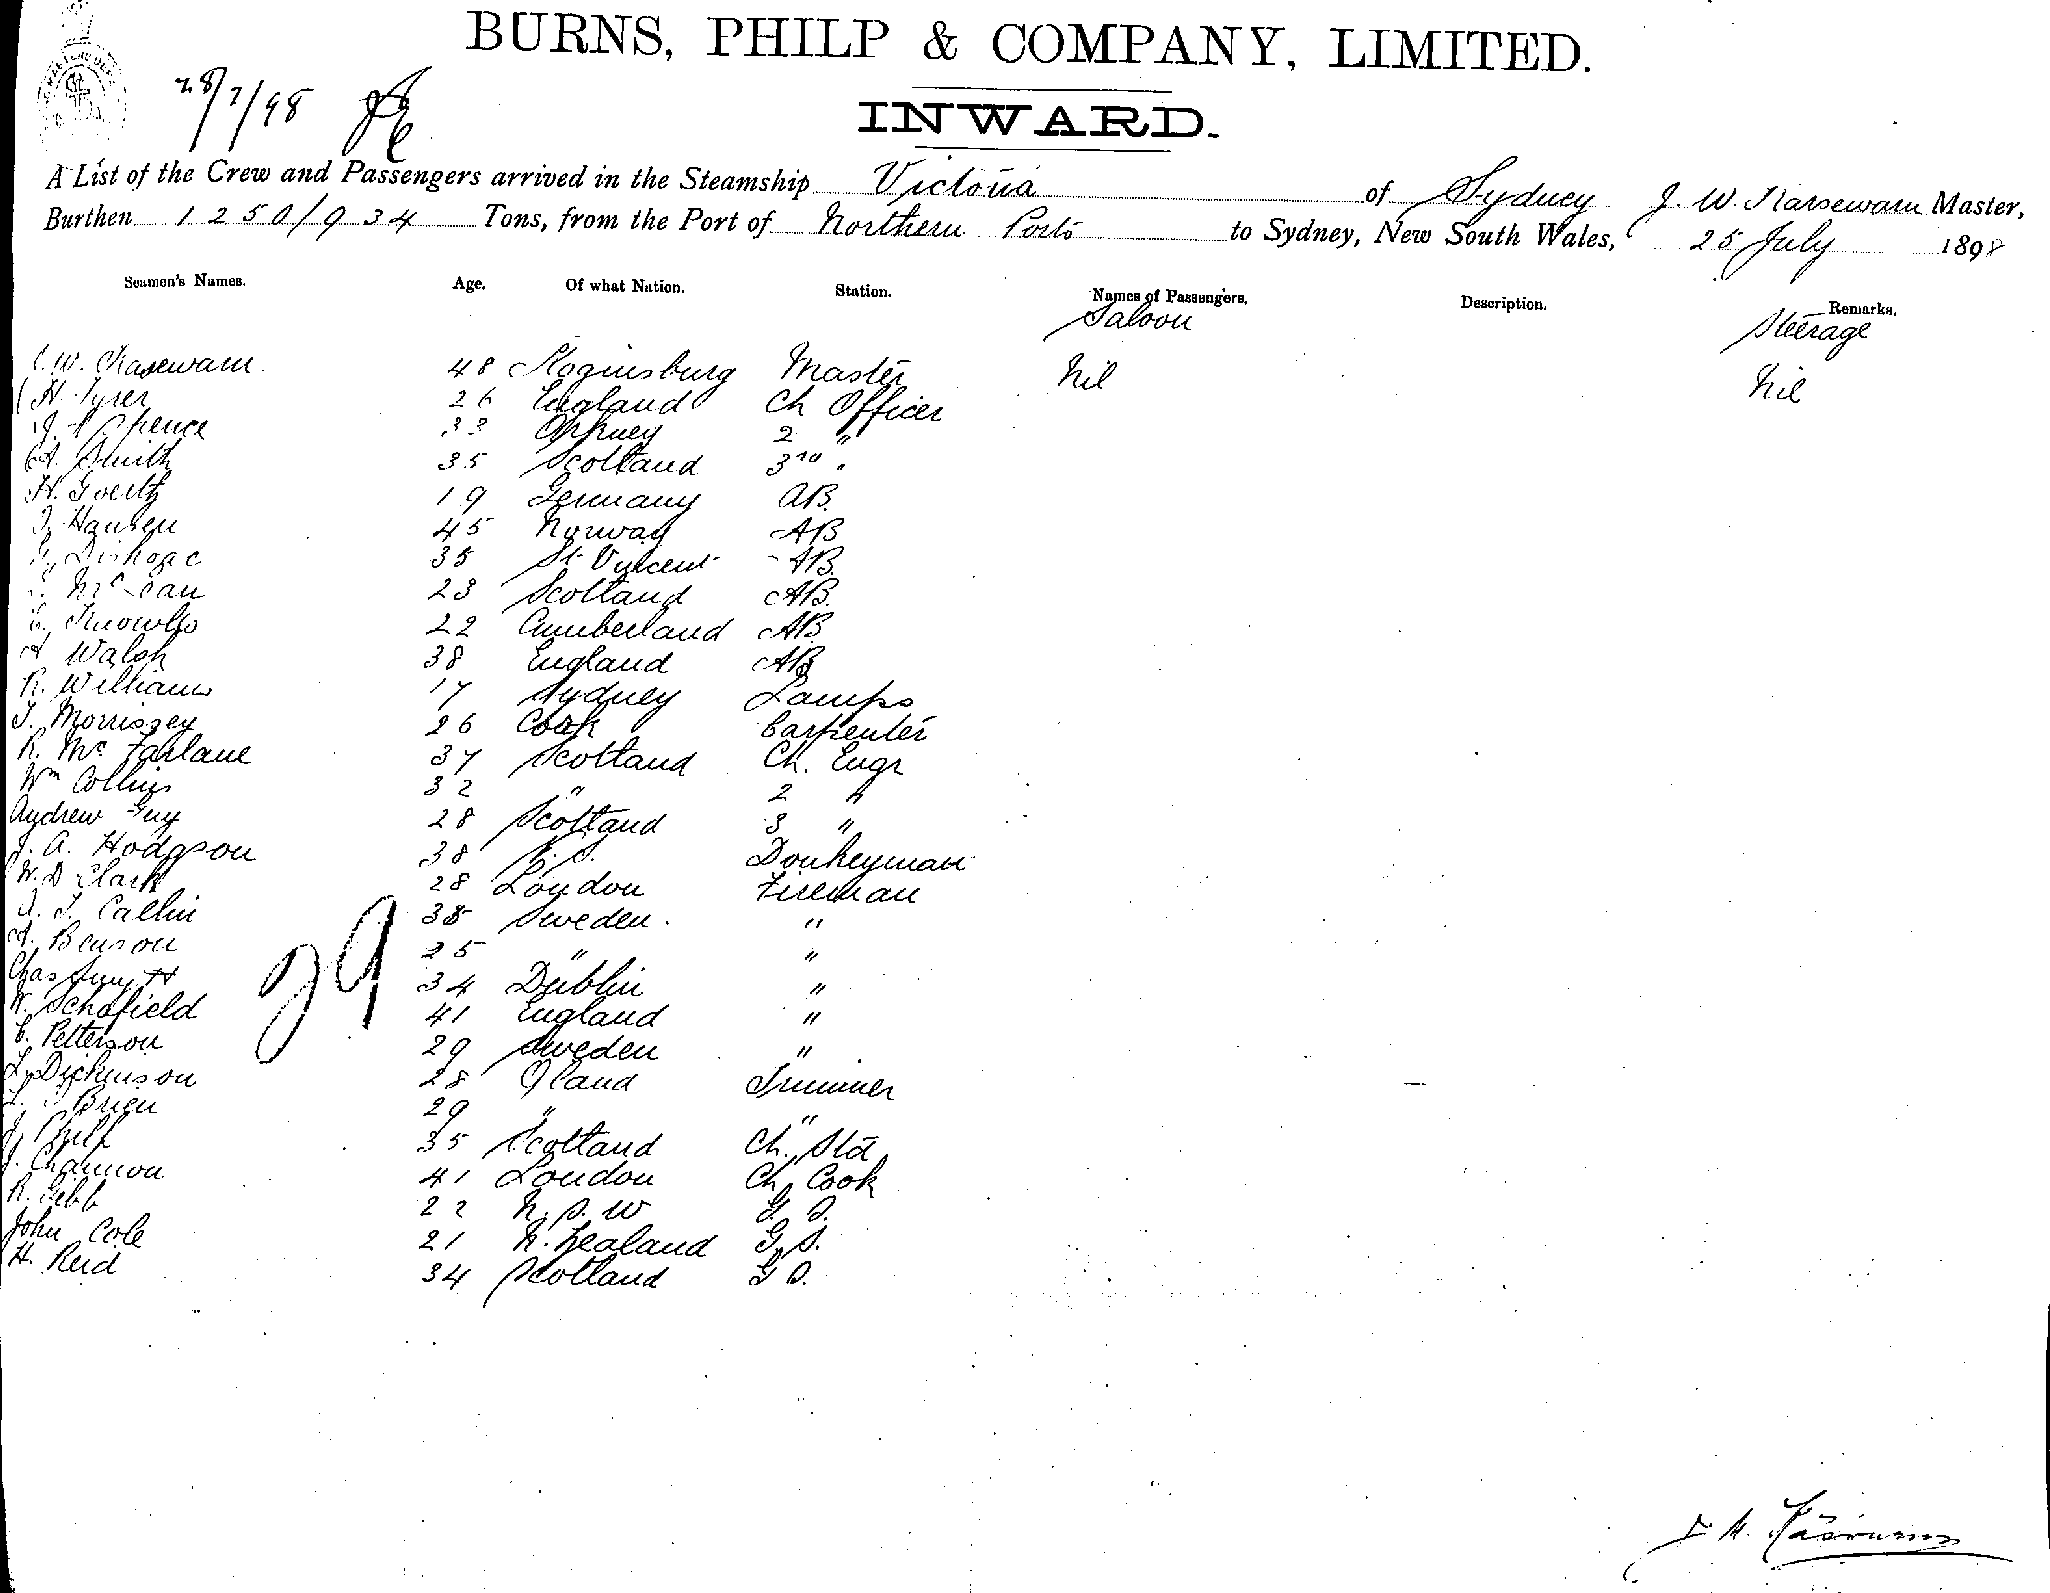 BURNS, PHILP & COMPANY, LIMITED.
28/7/98
INWARD.
A List of the Crew and Passengers arrived in the Steamship Victoria of Sydney J. W. Master,
Burthen 1250/934 Tons, from the Port of Northern Ports to Sydney, New South Wales, 25 July 1898
Seamen's Names. Age. Of what Nation. Station. Names of Passengers. Description. Remarks.
Saloon Steerage
W. 48 Master Nil Nil
H. Tyrer 26 England Ch Officer
J. Spence 33 Orkney 2 "
A. Smith 35 Scotland 3rd "
H. Goertz 19 Germany AB.
Hansen 45 Norway AB
35 St Vincent AB.
23 Scotland AB.
Knowles 22 Cumberland AB
A Walsh 38 England AB
R. Williams 17 Sydney Lamps
T. Morrissey 26 Cork Carpenter
R. Mc Farlane 37 Scotland Ch. Engr
Wm Collins 32 " 2 "
Andrew Guy 28 Scotland 3 "
J. A. Hodgson 38 Donkeyman
W. D Clark 28 London Fireman
Callin 38 Sweden. "
A. Benson 25 " "
Chas 34 Dublin "
W. Schofield 41 England "
C. Petterson 29 Sweden "
Dickinson 28 Trimmer
Brien 29 " "
35 Scotland Ch. Std
J. 41 London Ch Cook
R. Gibb 22 N. S. W G. S.
John Cole 21 N. Zealand G. S.
H. Reid 34 Scotland G S.
29